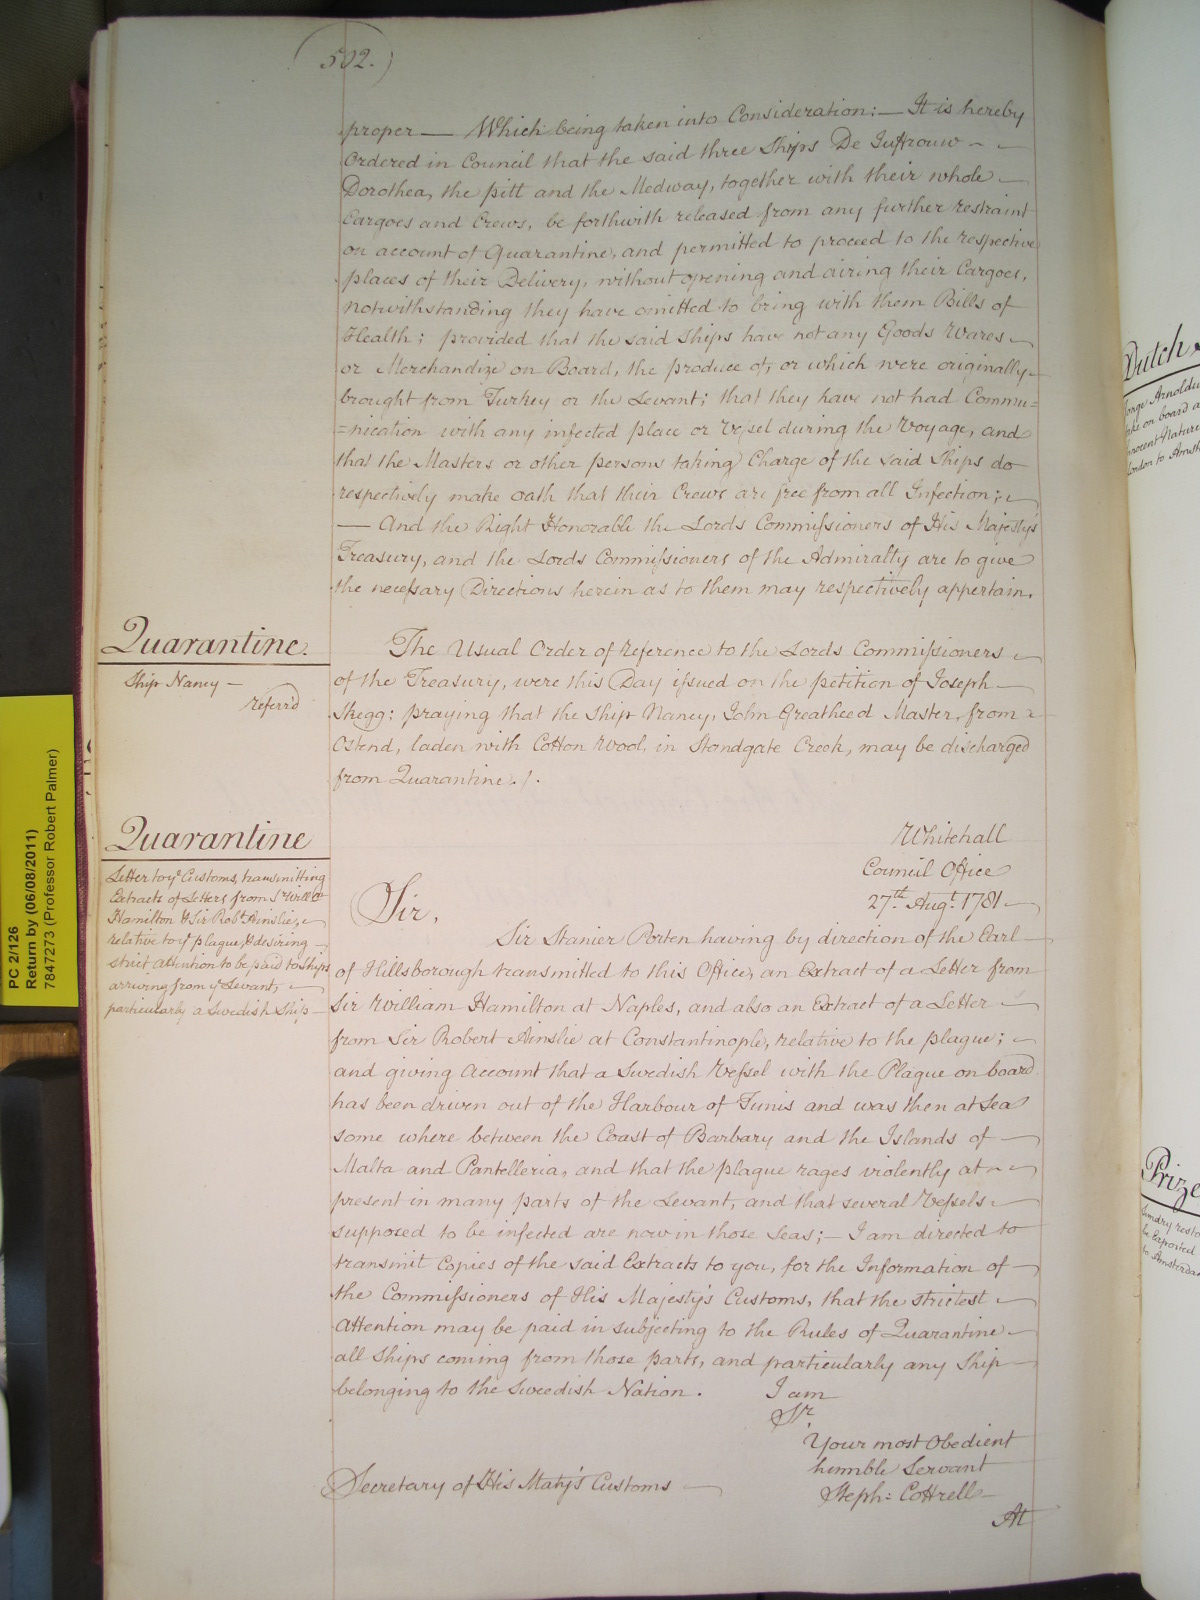 502.
proper — Which being taken into Consideration:— It is hereby
Ordered in Council that the said three Ships De Juffrouw
Dorothea, the pitt and the Medway, together with their whole
Cargoes and Crews, be forthwith released from any further restraint
on account of Quarantine, and permitted to proceed to the respective
places of their Delivery, without opening and airing their Cargoes,
notwithstanding they have omitted to bring with them Bills of
Health; provided that the said Ships have not any Goods Wares
or Merchandize on Board, the produce of, or which were originally
brought from Turkey or the Levant; that they have not had Commu=
=nication with any infected place or Vessel during the Voyage, and
that the Masters or other persons taking Charge of the said Ships do
respectively make oath that their Crews are free from all Infection;
— And the Right Honorable the Lords Commissioners of His Majestys
Treasury, and the Lords Commissioners of the Admiralty are to give
the necessary Directions herein as to them may respectively appertain.
Quarantine.
Ship Nancy —
referrd
The Usual Order of reference to the Lords Commissioners
of the Treasury, were this Day issued on the petition of Joseph
Skegg: praying that the Ship Nancy, John Greatheed Master, from
Ostend, laden with Cotton Wool, in Standgate Creek, may be discharged
from Quarantine./.
Quarantine
Letter to ye Customs, transmitting
Extracts of Letters from Sr Willm
Hamilton & Sir Robt Ainslie,
relative to ye plague, & desiring
strict attention to be paid to Ships
arriving from ye Levant,
particularly a Swedish Ship
Whitehall
Council Office
27th Augt 1781
Sir,
Sir Stanier Porten having by direction of the Earl
of Hillsborough transmitted to this Office, an Extract of a Letter from
Sir William Hamilton at Naples, and also an Extract of a Letter
from Sir Robert Ainslie at Constantinople, relative to the plague;
and giving Account that a Swedish Vessel with the Plague on board
has been driven out of the Harbour of Tunis and was then at Sea
some where between the Coast of Barbary and the Islands of
Malta and Pantelleria, and that the plague rages violently at
present in many parts of the Levant, and that several Vessels
supposed to be infected are now in those Seas;— I am directed to
transmit Copies of the said Extracts to you, for the Information of
the Commissioners of His Majesty's Customs, that the strictest
Attention may be paid in subjecting to the Rules of Quarantine
all Ships coming from those parts, and particularly any Ship
belonging to the Swedish Nation.
I am
Sr.
Your most Obedient
humble Servant
Steph: Cottrell
Secretary of His Maty's Customs
At
PC 2/126
Return by (06/08/2011)
7847273 (Professor Robert Palmer)
Dutch
Arnoldus
on board
nnocent Nature
London to
Prize
Sundry
be Exported
to Amsterdam